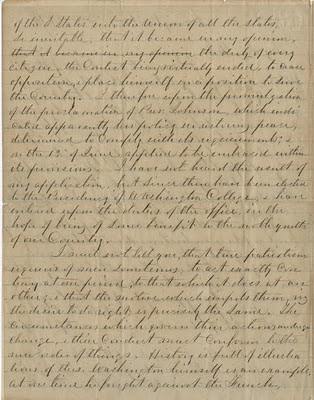 of the S States into the Union of all the States,
So inevitable, that it became in my opinion,
that it became in my opinion the duty of every
citizen, the Contest being virtually ended, to cease
opposition, & place himself in a position to serve
the Country. I therefore upon the promulgation
of the proclamation of Pres: Johnson, which indi-
cated apparently his policy in restoring peace,
determined to Comply with its requirements, &
on the 13th of June applied to be embraced within
its provisions. I have not heard the result of
my application, but since then have been elected
to the Presidency of Washington College, & have
entered upon the duties of the office, in the
hope of being of some benefit to the youth
of our Country.
I need not tell you, that true patriotism
requires of men sometimes, to act exactly Con-
trary at one period, to that which it does at an-
other, & that the motive which impels them, viz
the desire to do right, is precisely the same. The
Circumstances which govern their actions
change, & their Conduct must Conform to the
new order of things. History is full of illustra-
tions of this. Washington himself is an example,
at one time he fought against the French,